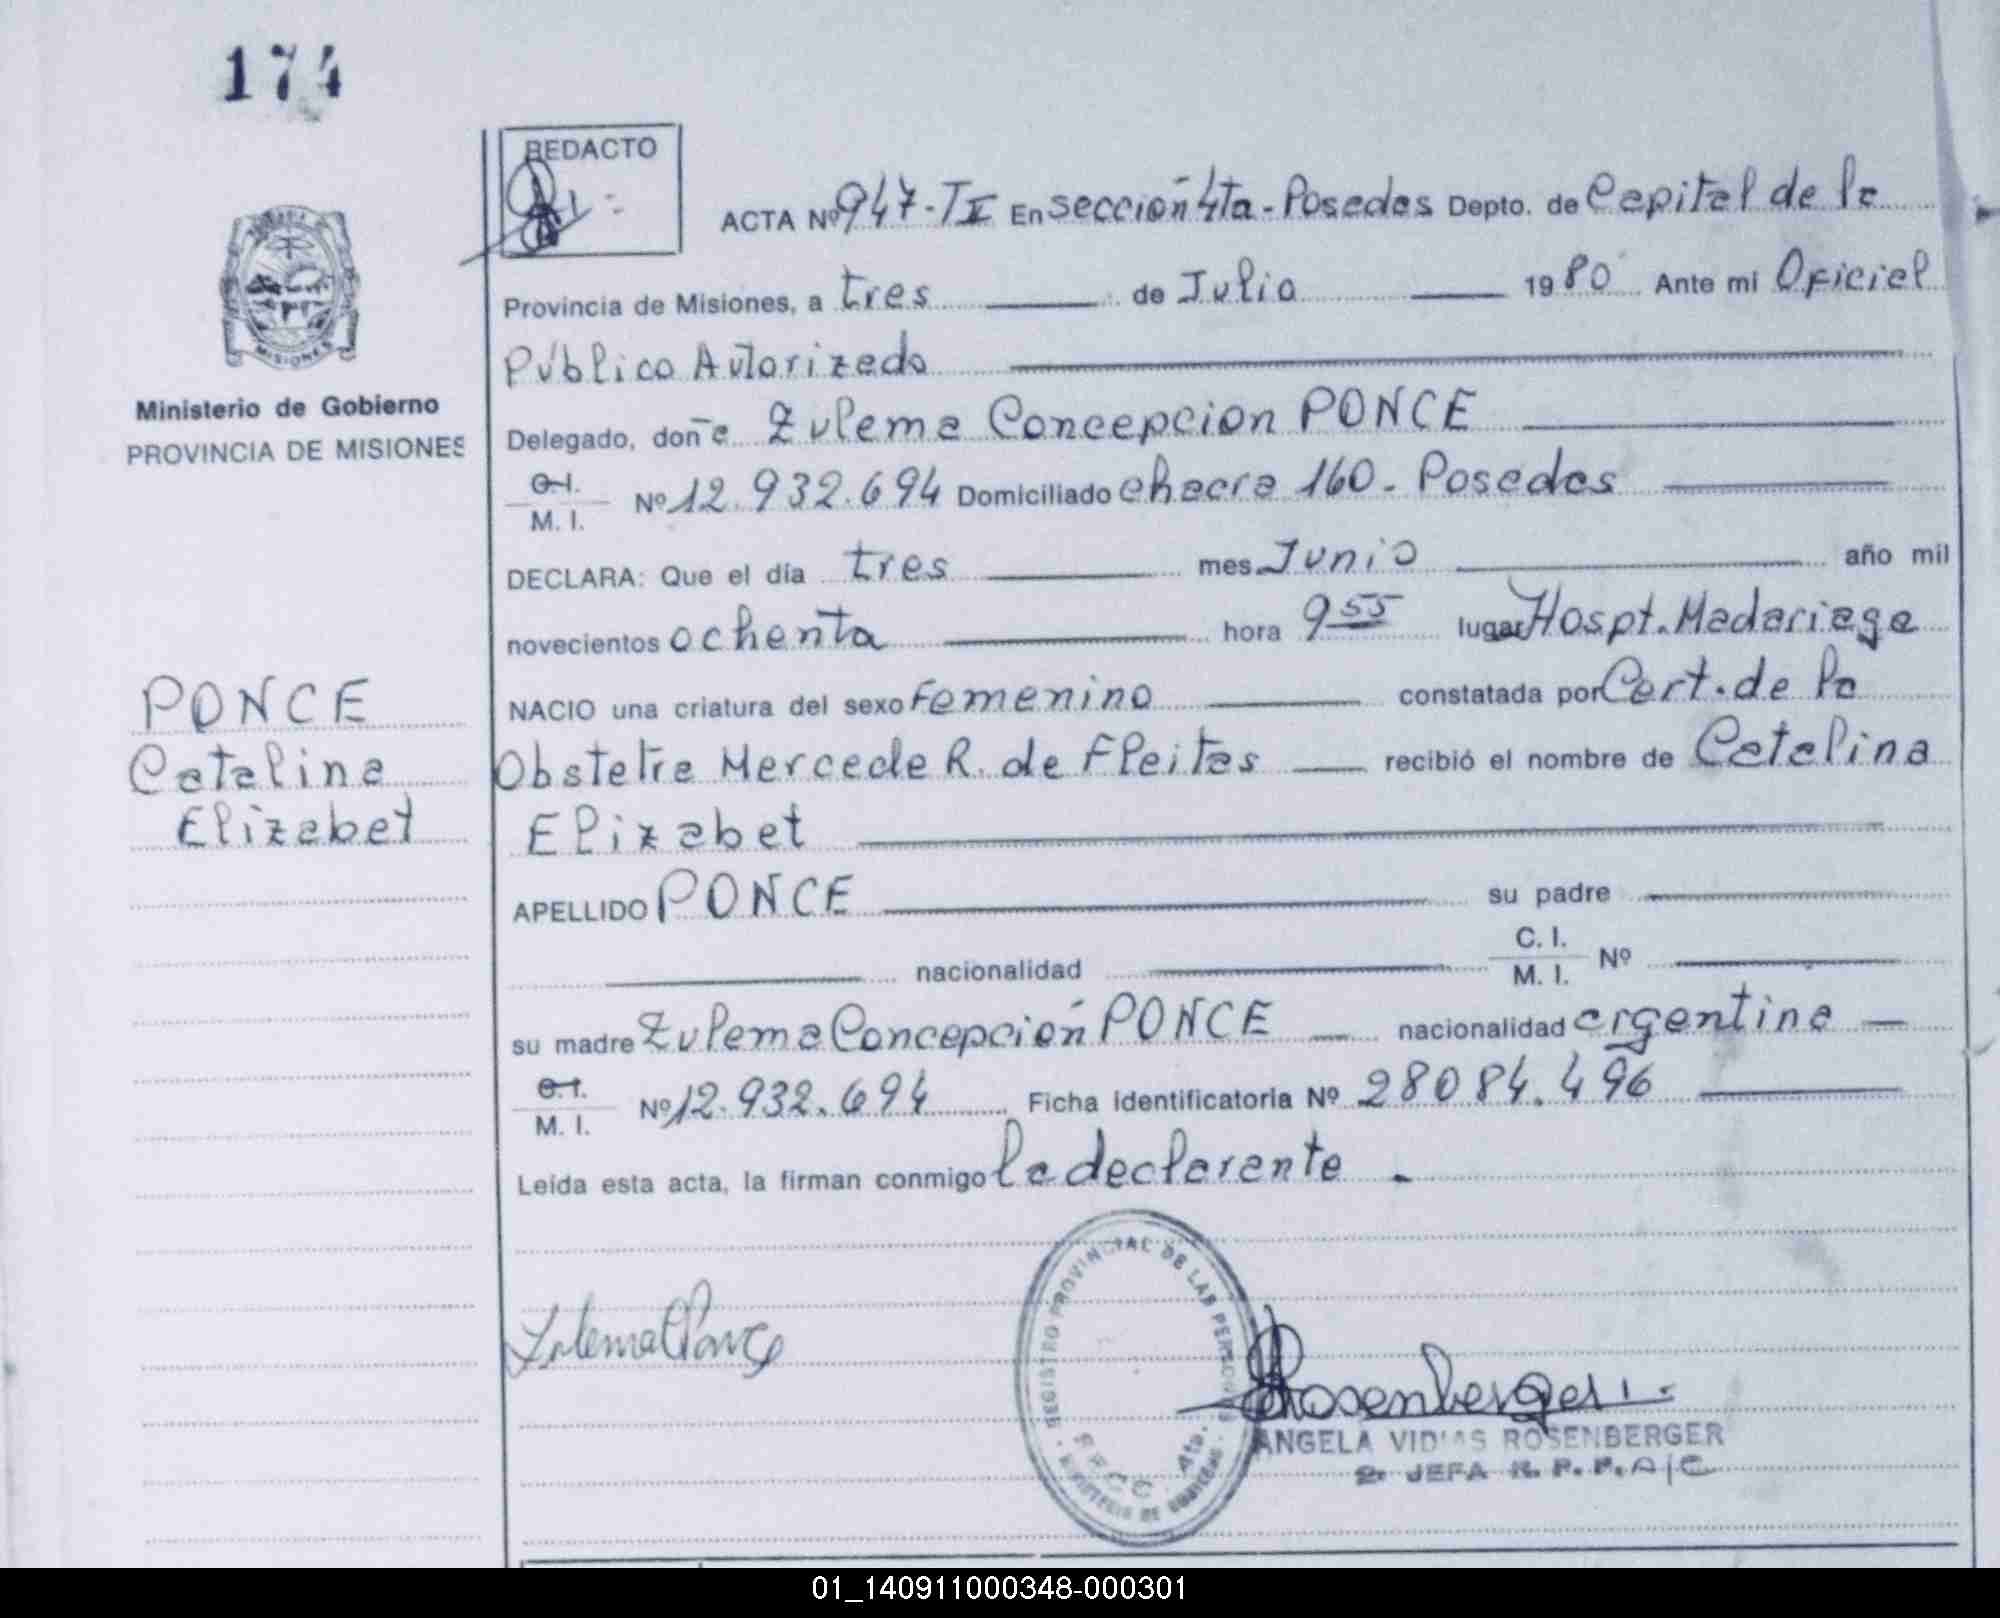 174
REDACTO
ACTA Nº 947-TII En sección 4ta-Posadas Depto. de Capital de la
Provincia de Misiones, a tres de Julio 1980 Ante mi Oficial
Público Autorizado
Ministerio de Gobierno
PROVINCIA DE MISIONES
MISIONES
Delegado, doña Zulema Concepcion PONCE
C.I.
M. I. Nº 12.932.694 Domiciliado chacra 160. Posadas
DECLARA: Que el día tres mes Junio año mil
novecientos ochenta hora 9 55 lugar Hospt. Madariaga
NACIO una criatura del sexo Femenino constatada por Cert. de la
Obstetra Mercede R. de Fleitas recibió el nombre de Catalina
Elizabet
PONCE
Catalina
Elizabet
APELLIDO PONCE su padre
nacionalidad C. I.
M. I. Nº
su madre Zulema Concepción PONCE nacionalidad argentina
C.I.
M. I. Nº 12.932.694 Ficha identificatoria Nº 28084.496
Leída esta acta, la firman conmigo la declarente.
Zulema C Ponce
REGISTRO PROVINCIAL DE LAS PERSONAS
SECC. 4ta.
MINISTERIO DE GOBIERNO
Rosenberger
ANGELA VIDIAS ROSENBERGER
2. JEFA R. P. P. A/C
01_140911000348-000301